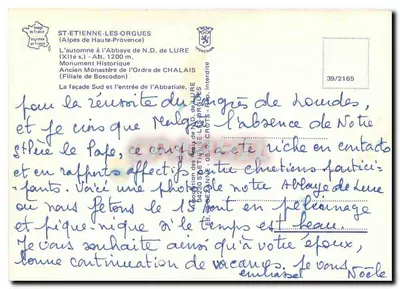 ST-ETIENNE-LES-ORGUES
(Alpes de Haute-Provence)
L'automne à l'Abbaye de N.D. de LURE
(XIIe s.) - Alt. 1200 m.
Monument Historique
Ancien Monastère de l'Ordre de CHALAIS
(Filiale de Boscodon)
La façade Sud et l'entrée de l'Abbatiale.
39/2165
pour la réussite du Congrès de Lourdes,
et je crois que malgré l'absence de Notre
St Père le Pape, ce congrès a été riche en contacts
et en rapports affectifs entre chrétiens partici-
pants. Voici une photo de notre Abbaye de Lure
où nous fêtons le 15 août en pélerinage
et pique-nique si le temps est beau.
Je vous souhaite ainsi qu'à votre époux,
bonne continuation de vacances. Je vous
embrasse Noële